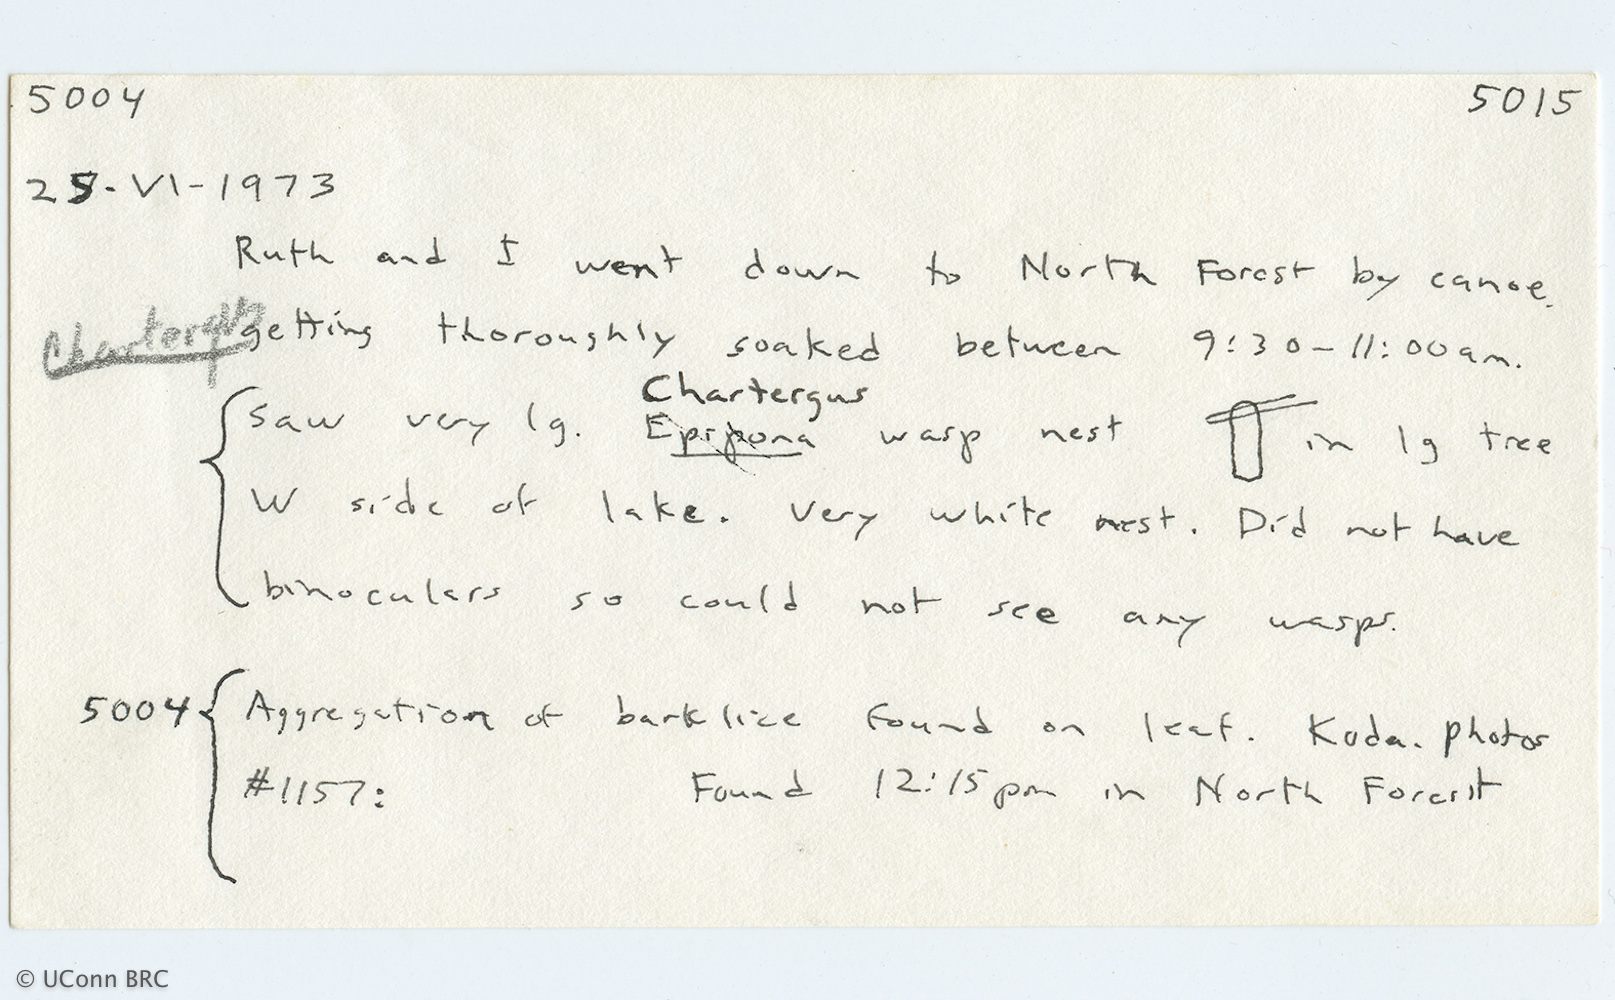 5004 5015
25-VI-1973
Ruth and I went down to North Forest by canoe,
Chartergus getting thoroughly soaked between 9:30-11:00am.
Chartergus
Saw very lg. Epipona wasp nest in lg tree
W side of lake. Very white nest. Did not have
binoculars so could not see any wasps.
5004 Aggregation of bark lice found on leaf. Koda. photos
#1157: Found 12:15pm in North Forest
© UConn BRC